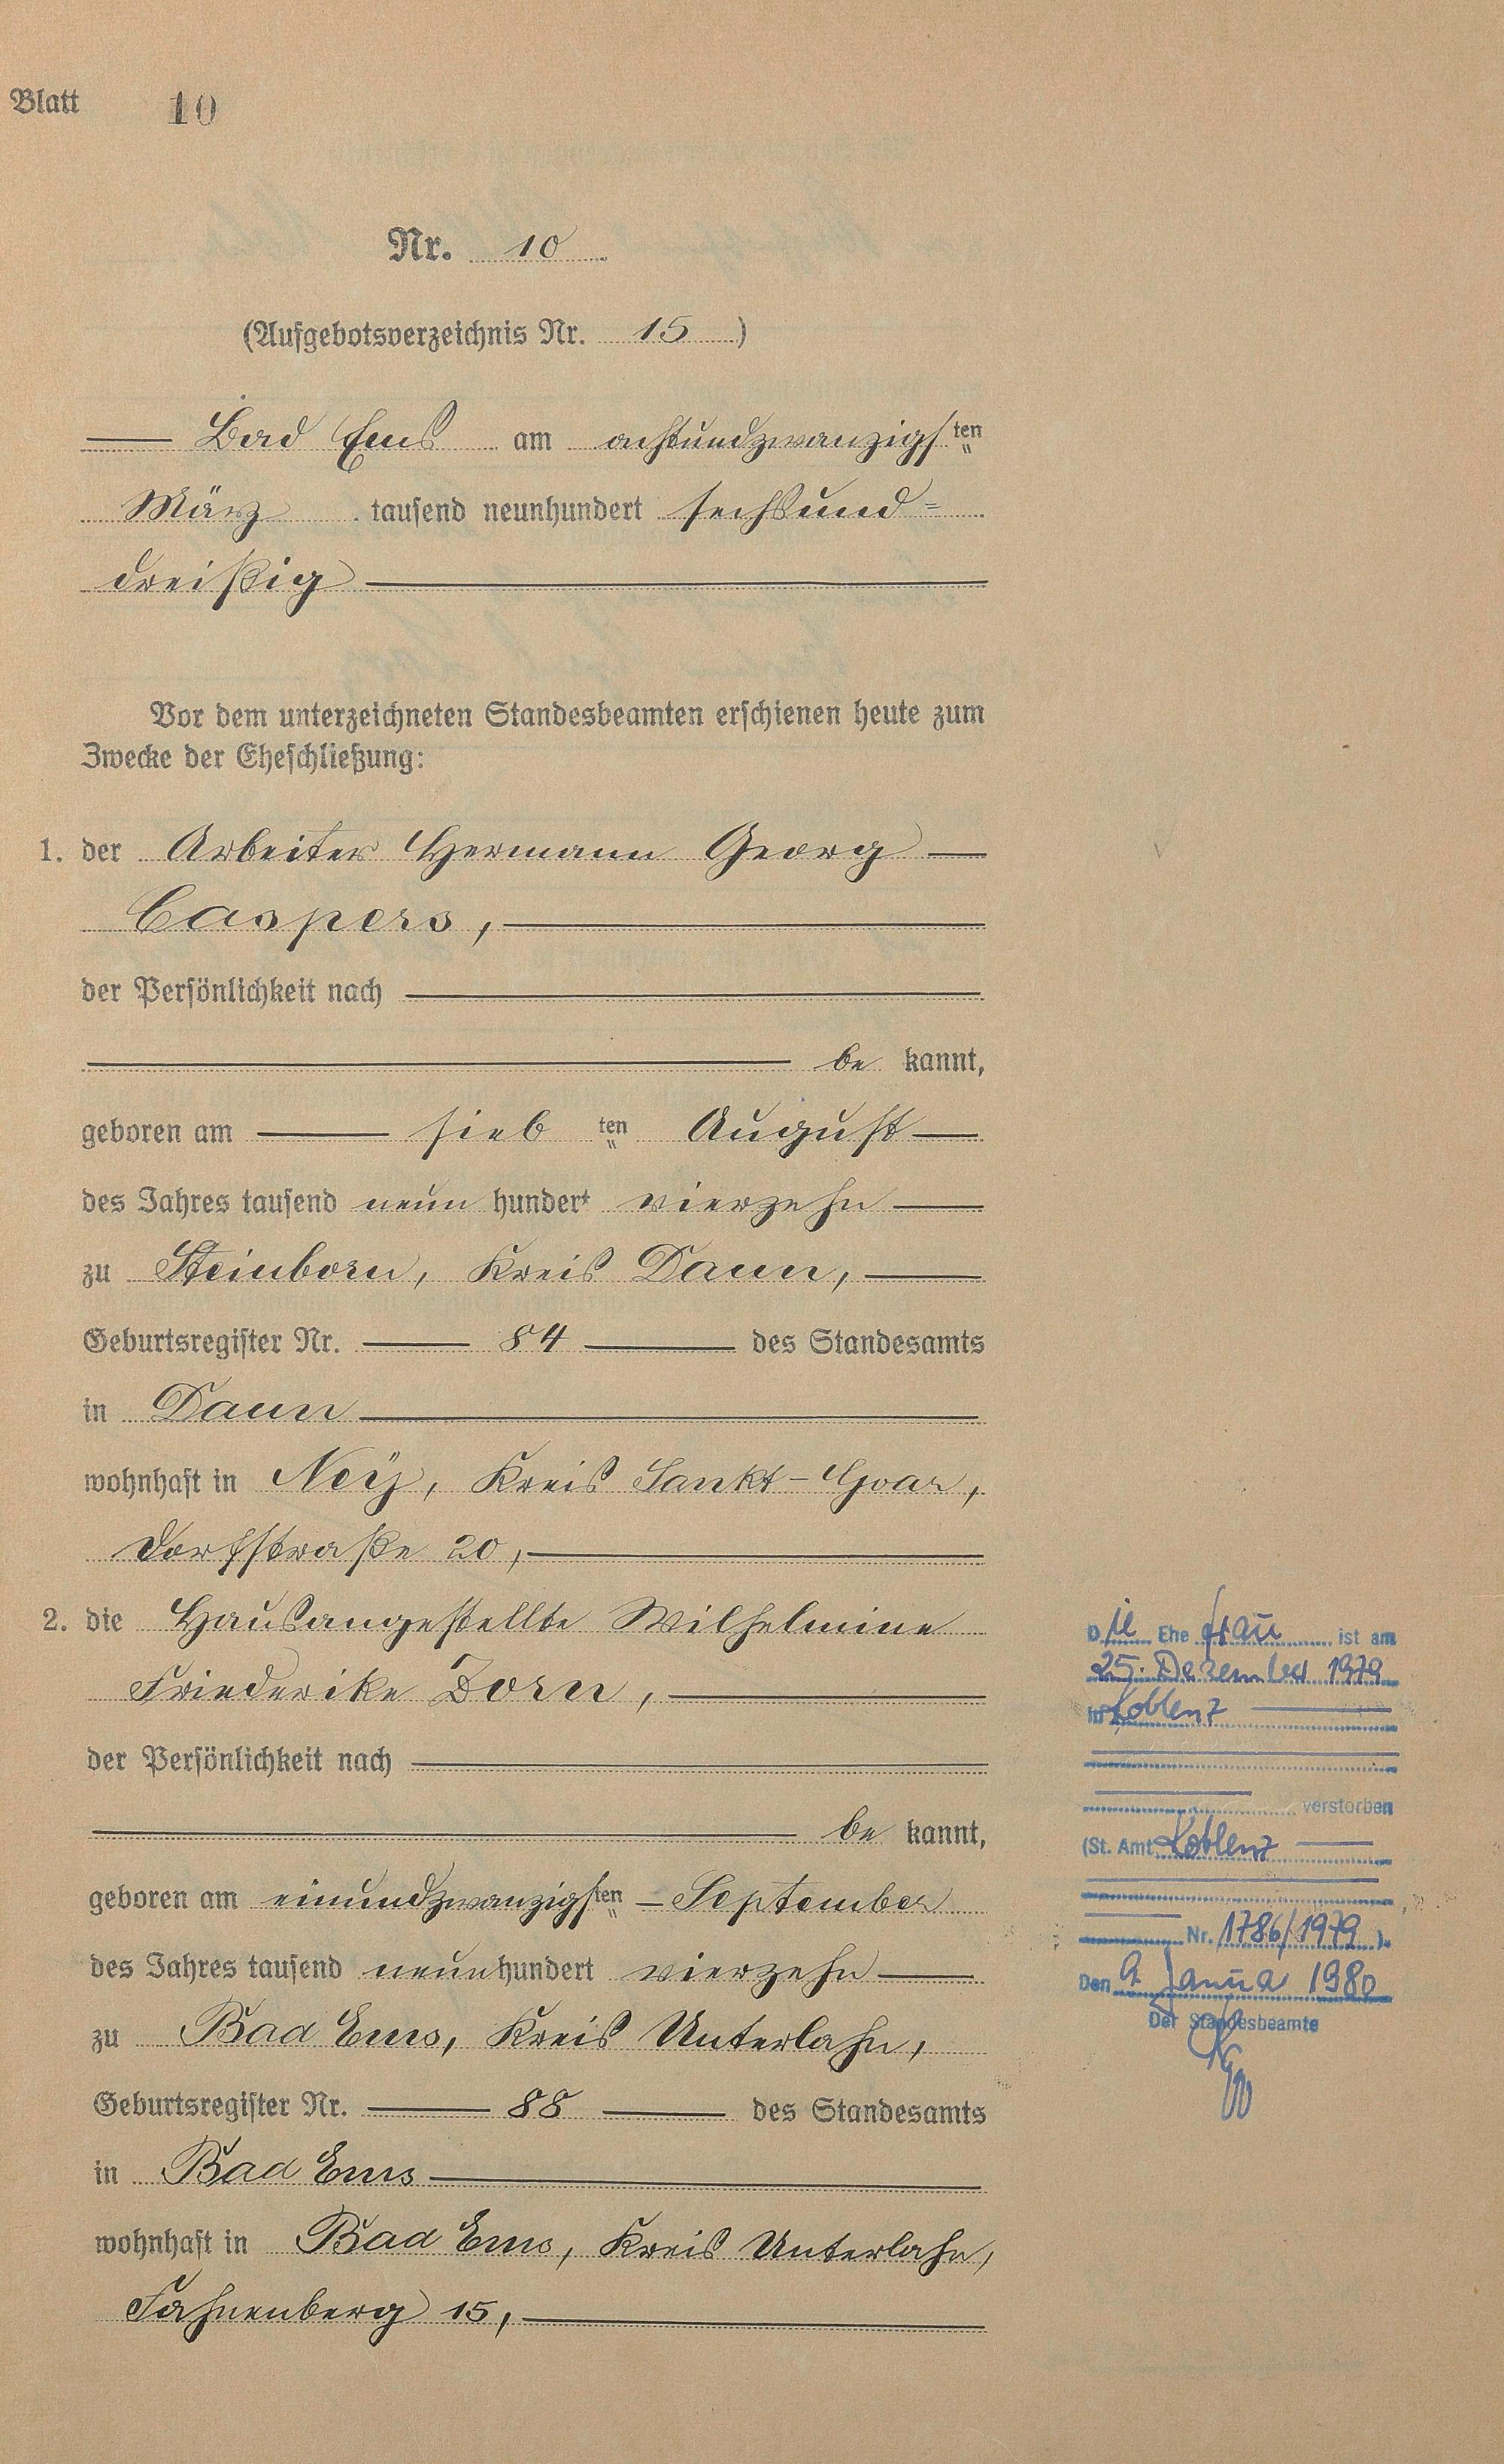 Blatt 10
Nr. 10
(Aufgebotsverzeichnis Nr. 15)
Bad Ems am achtundzwanzigsten
März tausend neunhundert sechsund=
dreißig
Vor dem unterzeichneten Standesbeamten erschienen heute zum
Zwecke der Eheschließung:
1. der Arbeiter Hermann Georg
Caspers,
der Persönlichkeit nach
be kannt,
geboren am sieb ten August
des Jahres tausend neun hundert vierzehn
zu Steinborn, Kreis Daun,
Geburtsregister Nr. 84 des Standesamts
in Daun
wohnhaft in Neÿ, Kreis Sankt-Goar,
Dorfstraße 20,
2. die Hausangestellte Wilhelmine
Friederike Dorn,
der Persönlichkeit nach
be kannt,
geboren am einundzwanzigsten September
des Jahres tausend neunhundert vierzehn
zu Bad Ems, Kreis Unterlahn,
Geburtsregister Nr. 88 des Standesamts
in Bad Ems
wohnhaft in Bad Ems, Kreis Unterlahn,
Fahnenberg 15,
Die Ehe frau ist am
25. Dezember 1979
in Koblenz
verstorben
(St. Amt Koblenz
Nr. 1786/1979).
Den 9. Janua 1980
Der Standesbeamte